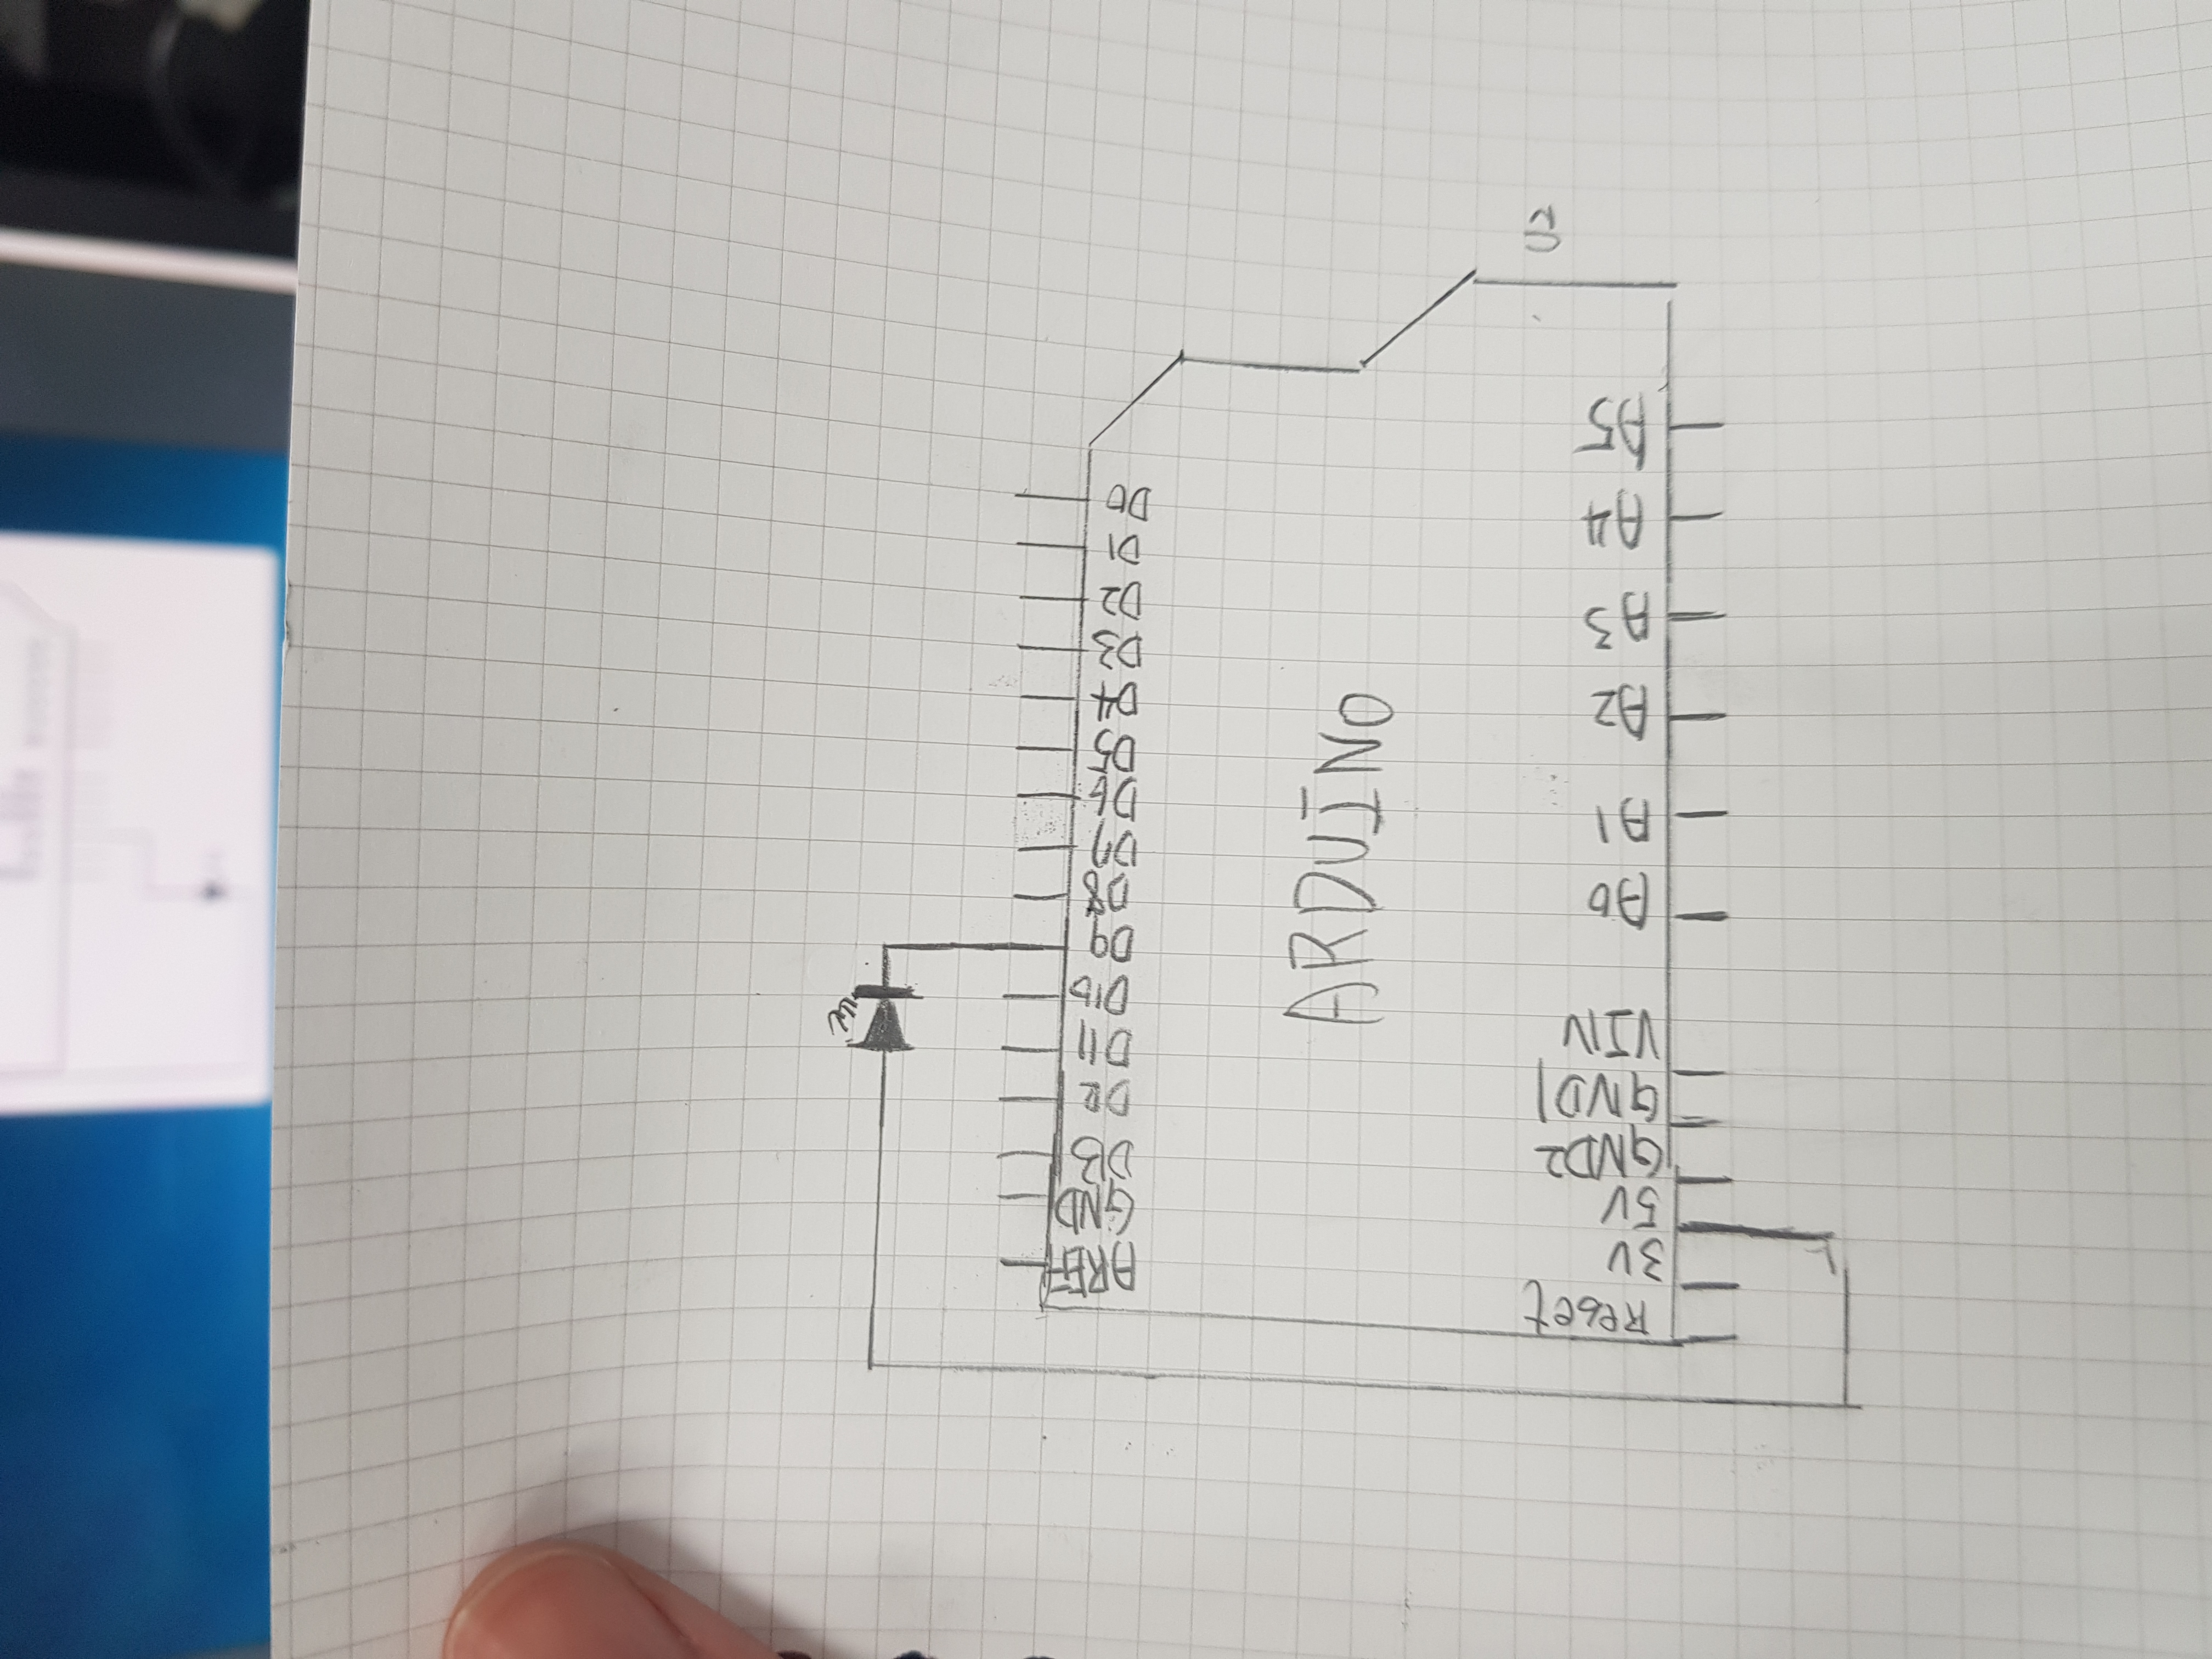 AREF
GND
D13
D12
D11
D10
D9
D8
D7
D6
D5
D4
D3
D2
D1
D0
ARDUINO
Reset
3V
5V
GND2
GND1
VIN
A0
A1
A2
A3
A4
A5
U2